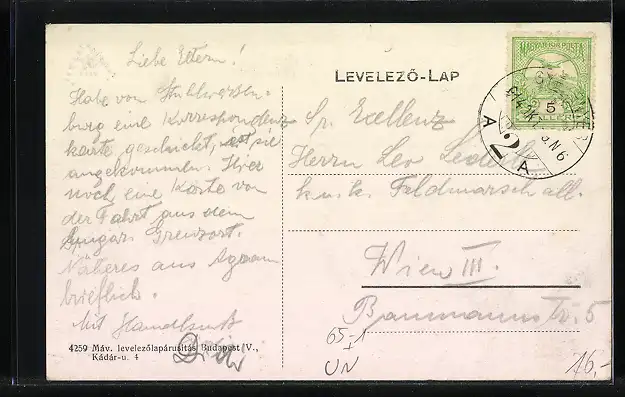 Liebe Eltern!
Habe von Stuhlweissen-
burg eine Korrespondenz
karte geschickt, ist sie
angekommen. Hier
noch eine Karte von
der Fahrt aus dem
Ungar. Grenzort.
Näheres aus Agram
brieflich.
Mit Handkuss
4259 Máv. levelezőlapárusitás Budapest V.,
Kádár-u. 4
LEVELEZŐ-LAP
MAGYAR KIR. POSTA
5
FILLÉR
A 2 A
Sr. Exellenz
Herrn Leo
k.u.k. Feldmarschall.
Wien III.
Baumannstr. 5
65-1
UN
16,-